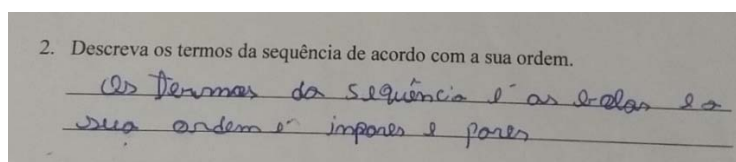 2. Descreva os termos da sequência de acordo com a sua ordem.
Os Termos da sequência e as bolas e a
sua ordem e impares e pares